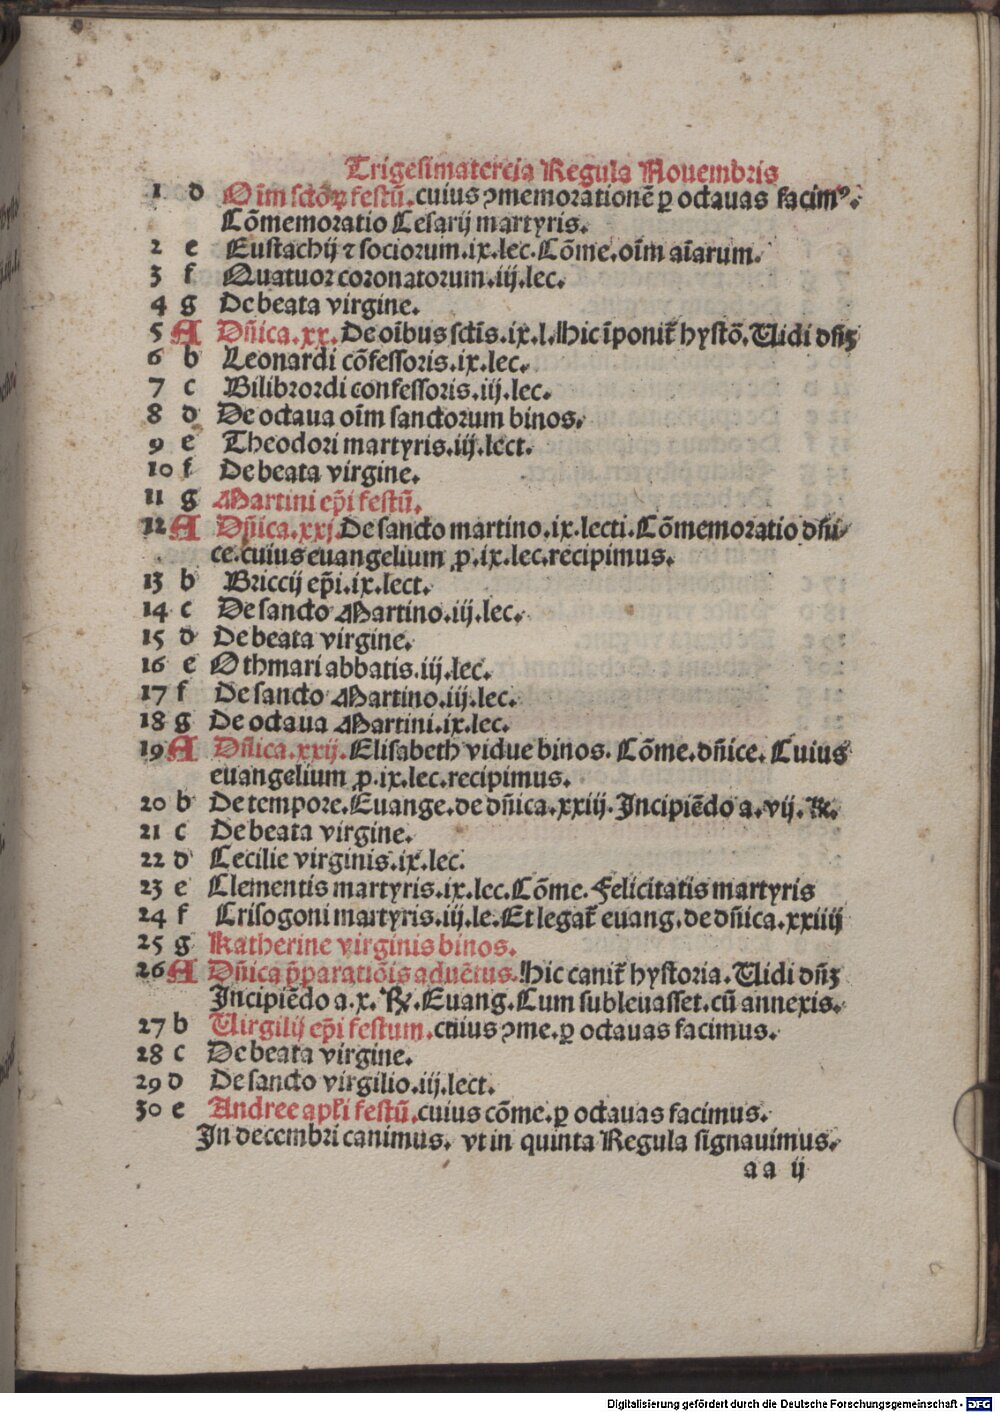 Trigesimatercia Regula Nouembris
1 d Oĩm sctõꝝ festũ. cuius ꝯmemorationẽ ꝑ octauas facimꝰ.
Cõmemoratio Cesarij martyris.
2 e Eustachij ⁊ sociorum. ix. lec. Cõme. oĩm aĩarum.
3 f Quatuor coronatorum. iij. lec.
4 g De beata virgine.
5 A Dñica. xx. De oĩbus sctĩs. ix. l. Hic ĩponit̃ hystõ. Uidi dñꝫ
6 b Leonardi cõfessoris. ix. lec.
7 c Bilibrordi confessoris. iij. lec.
8 d De octaua oĩm sanctorum binos.
9 e Theodori martyris. iij. lect.
10 f De beata virgine.
11 g Martini ep̃i festũ.
12 A Dñica. xxj. De sancto martino. ix. lecti. Cõmemoratio dñi⸗
ce. cuius euangelium ꝓ. ix. lec. recipimus.
13 b Briccij ep̃i. ix. lect.
14 c De sancto Martino. iij. lec.
15 d De beata virgine.
16 e Othmari abbatis. iij. lec.
17 f De sancto Martino. iij. lec.
18 g De octaua Martini. ix. lec.
19 A Dñica. xxij. Elisabeth vidue binos. Cõme. dñice. Cuius
euangelium ꝓ. ix. lec. recipimus.
20 b De tempore. Euange. de dñica. xxiij. Incipiẽdo a. vij. ℞.
21 c De beata virgine.
22 d Cecilie virginis. ix. lec.
23 e Clementis martyris. ix. lec. Cõme. Felicitatis martyris
24 f Crisogoni martyris. iij. le. Et legat̃ euang. de dñica. xxiiij
25 g Katherine virginis binos.
26 A Dñica p̃paratiõis aduẽtus. Hic canit̃ hystoria. Uidi dñꝫ
Incipiẽdo a. x. ℞. Euang. Cum subleuasset. cũ annexis.
27 b Uirgilij ep̃i festum. cuius ꝯme. ꝑ octauas facimus.
28 c De beata virgine.
29 d De sancto virgilio. iij. lect.
30 e Andree apl̃i festũ. cuius cõme. ꝑ octauas facimus.
In decembri canimus. vt in quinta Regula signauimus.
a a ij
Digitalisierung gefördert durch die Deutsche Forschungsgemeinschaft - DFG